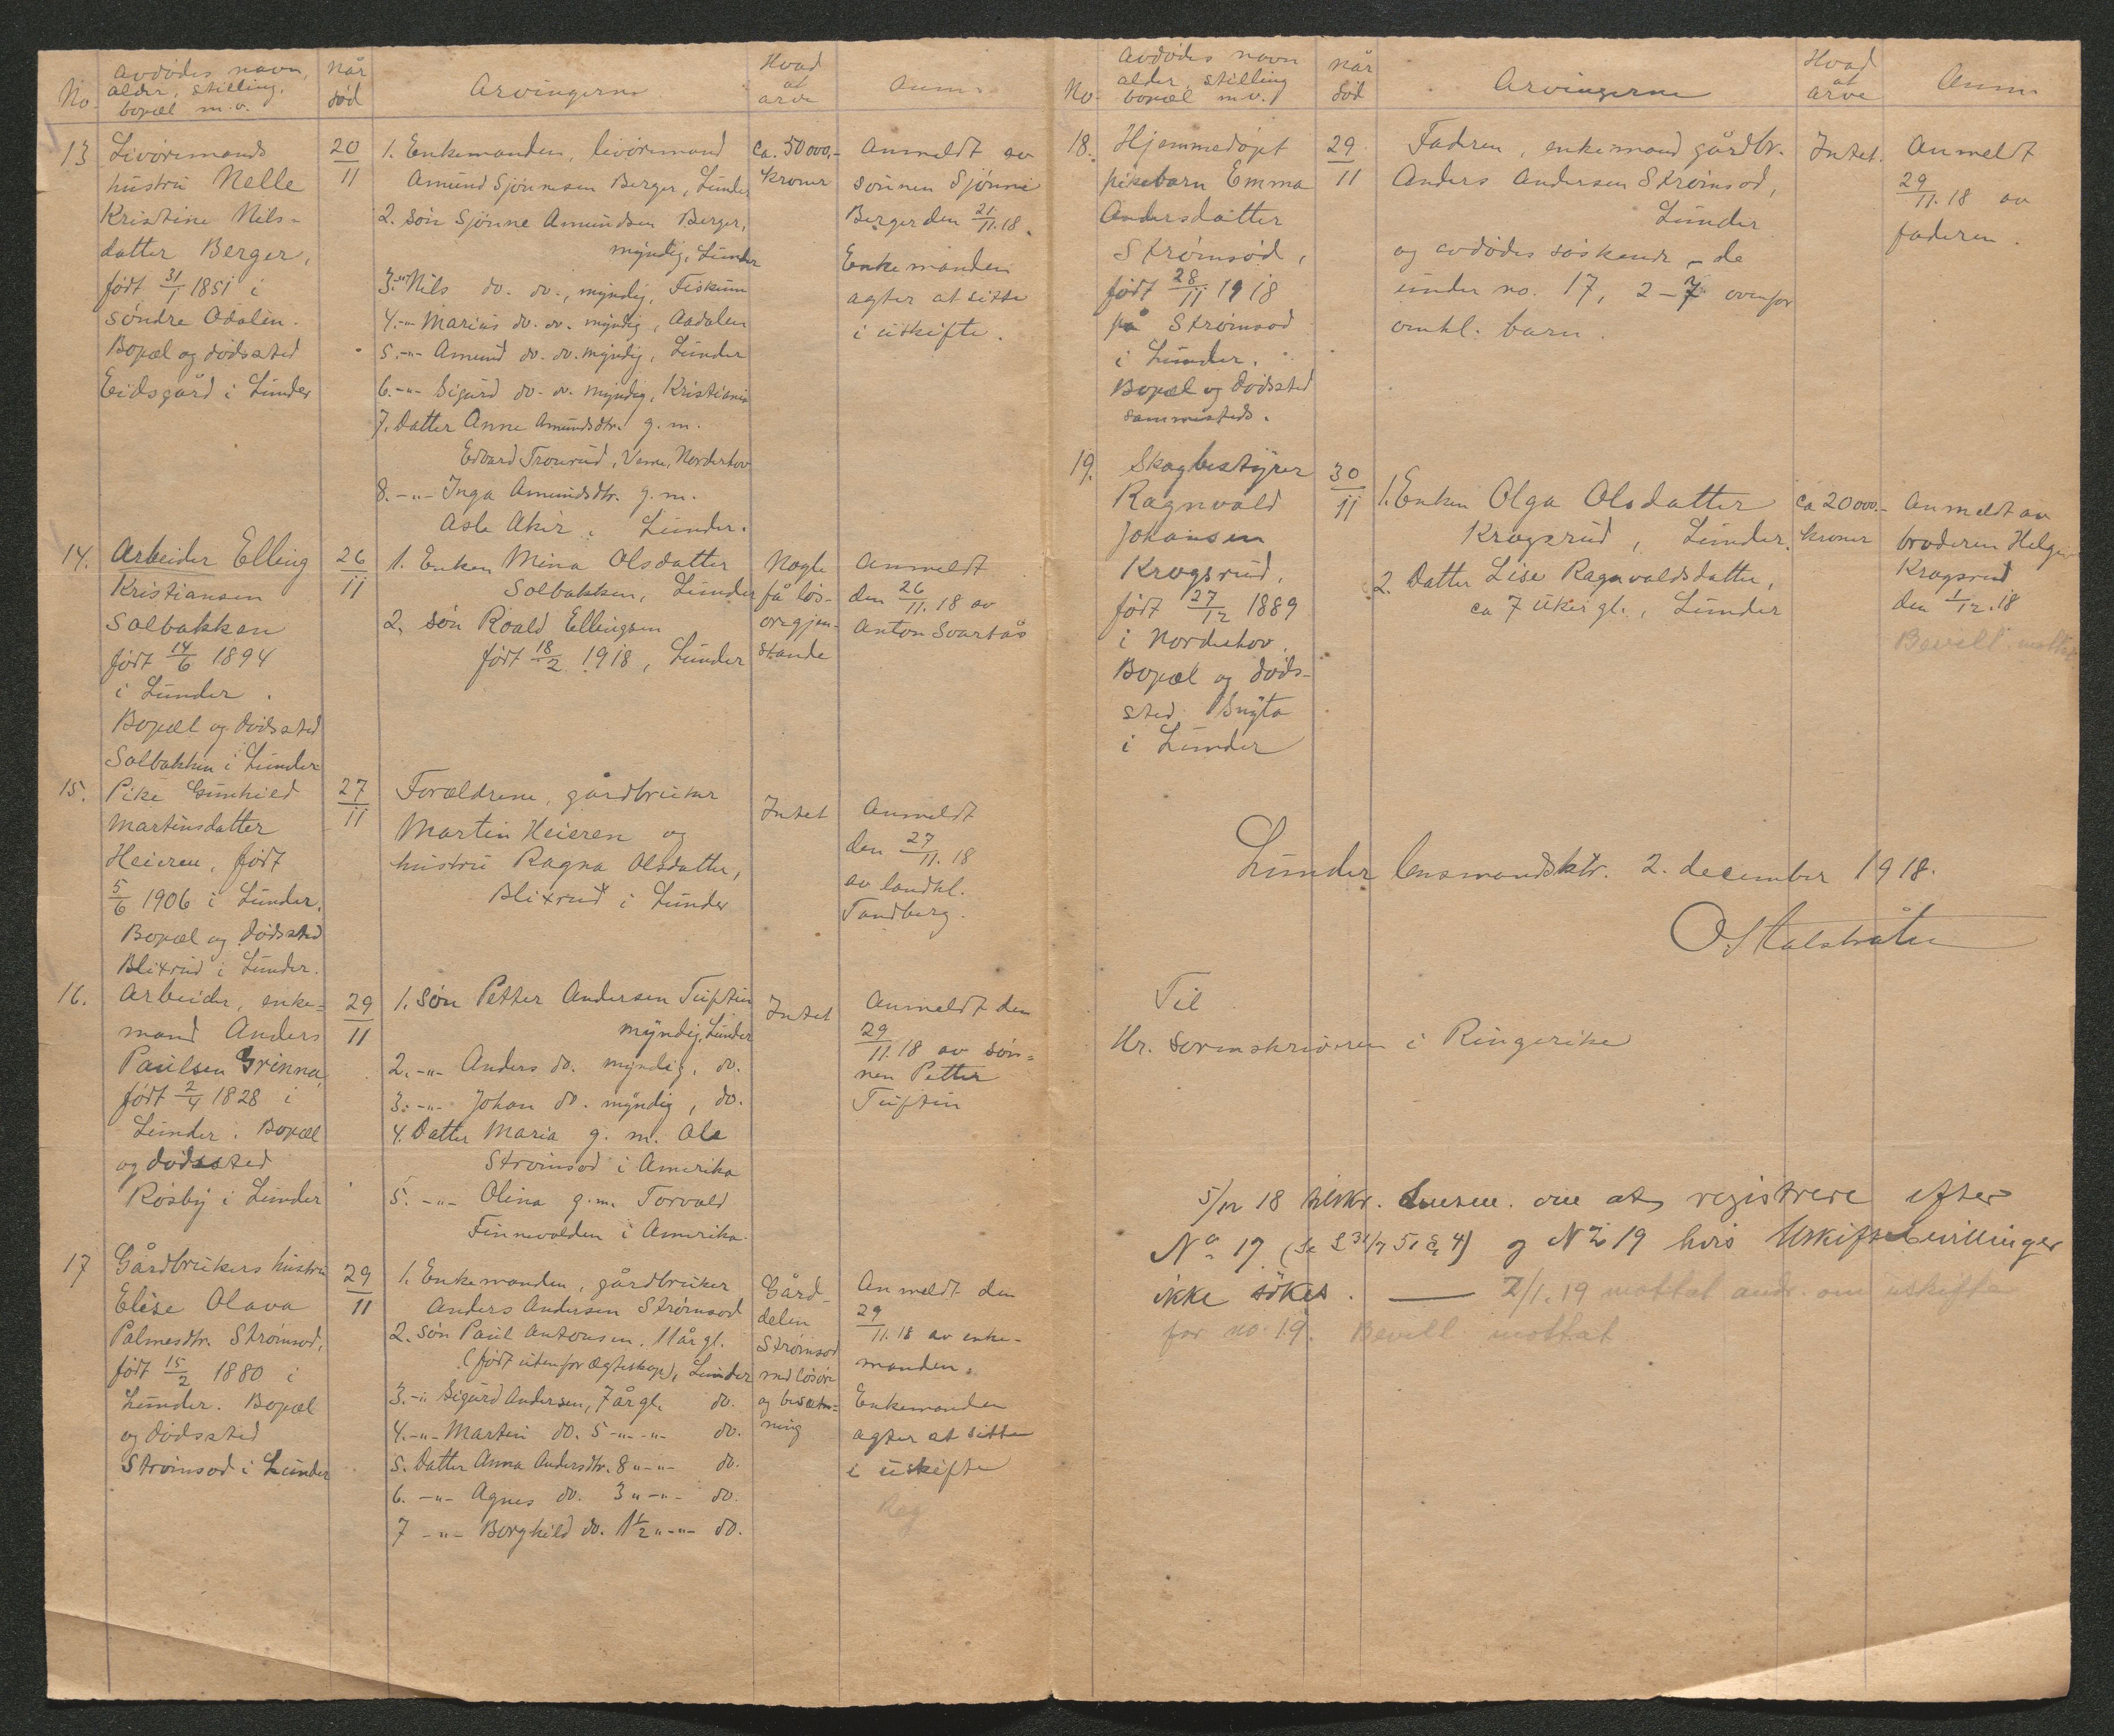 No.
Avdødes navn,
alder, stilling,
bopæl m.v.
når
død
Arvingerne
Hvad
at
arve
Anm.
13
Livøremands
hustru Nelle
Kristine Nils-
datter Berger,
født 31/1 1851 i
søndre Ådalen.
Bopæl og dødssted
Eidsgård i Lunder
20/11
1. Enkemanden, livøremand
Amund Sjønnesen Berger, Lunder
2. søn Sjønne Amundsen Berger,
myndig, Lunder
3. -"- Nils do. do., myndig, Fiskum
4. -"- Marius do. do. myndig, Aadalen
5. -"- Amund do. do. myndig, Lunder
6. -"- Sigurd do. do. myndig, Kristiania
7. Datter Anne Amundsdtr. g. m.
Edvard Tronrud, Veme, Norderhov
8. -"- Inga Amundsdtr. g. m.
Asle Aker, Lunder.
ca. 50 000,-
kroner
Anmeldt av
sønnen Sjønne
Berger den 21/11.18.
Enkemanden
agter at sitte
i uskifte.
14.
Arbeider Elling
Kristiansen
Solbakken
født 14/6 1894
i Lunder.
Bopæl og dødssted
Solbakken i Lunder
26/11
1. Enken Mina Olsdatter
Solbakken, Lunder
2. søn Roald Ellingsen
født 18/2 1918, Lunder
Nogle
få løs-
øregjen-
stande
Anmeldt
den 26/11.18 av
Anton Svartås
15.
Pike Gunhild
Martinsdatter
Heieren, født
5/6 1906 i Lunder.
Bopæl og dødssted
Blixrud i Lunder.
27/11
Forældrene, gårdbruker
Martin Heieren og
hustru Ragna Olsdatter,
Blixrud i Lunder
Intet
Anmeldt
den 27/11.18
av landhl.
Tandberg.
16.
Arbeider, enke-
mand Anders
Paulsen Grinna,
født 2/4 1828 i
Lunder. Bopæl
og dødssted
Røsby i Lunder
29/11
1. Søn Petter Andersen Tuftin
myndig, Lunder
2. -"- Anders do. myndig, do.
3. -"- Johan do. myndig, do.
4. Datter Maria g. m. Ole
Strømsod i Amerika
5. -"- Olina g. m. Torvald
Finnevolden i Amerika.
Intet
Anmeldt den
29/11.18 av søn-
nen Petter
Tuftin
17
Gårdbrukers hustru
Elise Olava
Palmesdtr. Strømsod,
født 15/2 1880 i
Lunder. Bopæl
og dødssted
Strømsod i Lunder
29/11
1. Enkemanden, gårdbruker
Anders Andersen Strømsod
2. Søn Paul Antonsen, 11 år gl.
(født utenfor ægteskap), Lunder
3. -"- Sigurd Andersen, 7 år gl. do.
4. -"- Martin do. 5 -"- -"- do.
5. Datter Anna Andersdtr. 8 -"- -"- do.
6. -"- Agnes do. 3 " -"- do.
7 -"- Borghild do. 1 1/2 " -"- do.
Gård-
delen
Strømsod
med løsøre
og besæt-
ning
Anmeldt den
29/11.18 av enke-
manden.
Enkemanden
agter at sitte
i uskifte
Reg
No.
Avdødes navn
alder, stilling
bopæl m.v.
når
død
Arvingerne
Hvad
at
arve
Anm
18.
Hjemmedøpt
pikebarn Emma
Andersdatter
Strømsod,
født 28/11 1918
på Strømsod
i Lunder.
Bopæl og dødssted
sammesteds.
29/11
Fadren, enkemand gårdbr.
Anders Andersen Strømsod,
Lunder
og avdødes søskende - de
under no. 17, 2-7 ovenfor
omhl. barn.
Intet.
Anmeldt
29/11.18 av
faderen.
19.
Skogbestyrer
Ragnvald
Johansen
Krogsrud,
født 27/12 1889
i Norderhov.
Bopæl og døds-
sted Bugta
i Lunder
30/11
1. Enken Olga Olsdatter
Krogsrud, Lunder.
2. Datter Lise Ragnvaldsdatter,
ca 7 uker gl., Lunder
ca 20 000.-
kroner
Anmeldt av
broderen Helge
Krogsrud
den 1/12.18
Bevill. mottat
Lunder lensmandsktr. 2. december 1918.
Til
Hr. Sorenskriveren i Ringerike
5/12 18 tilskr. Lensm. om at registrere efter
No 17 (se L 31/7 51 § 4) og No 19 hvis Uskiftebevillinger
ikke søkes. — 2/1.19 mottat andr. om uskifte
for no. 19. Bevill mottat